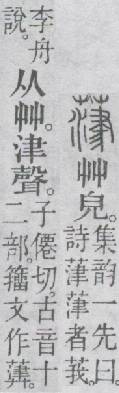 葏艸皃。集韵一先曰。詩葏葏者莪。
李舟說。从艸。津聲。子僊切。古音十二部。籒文作